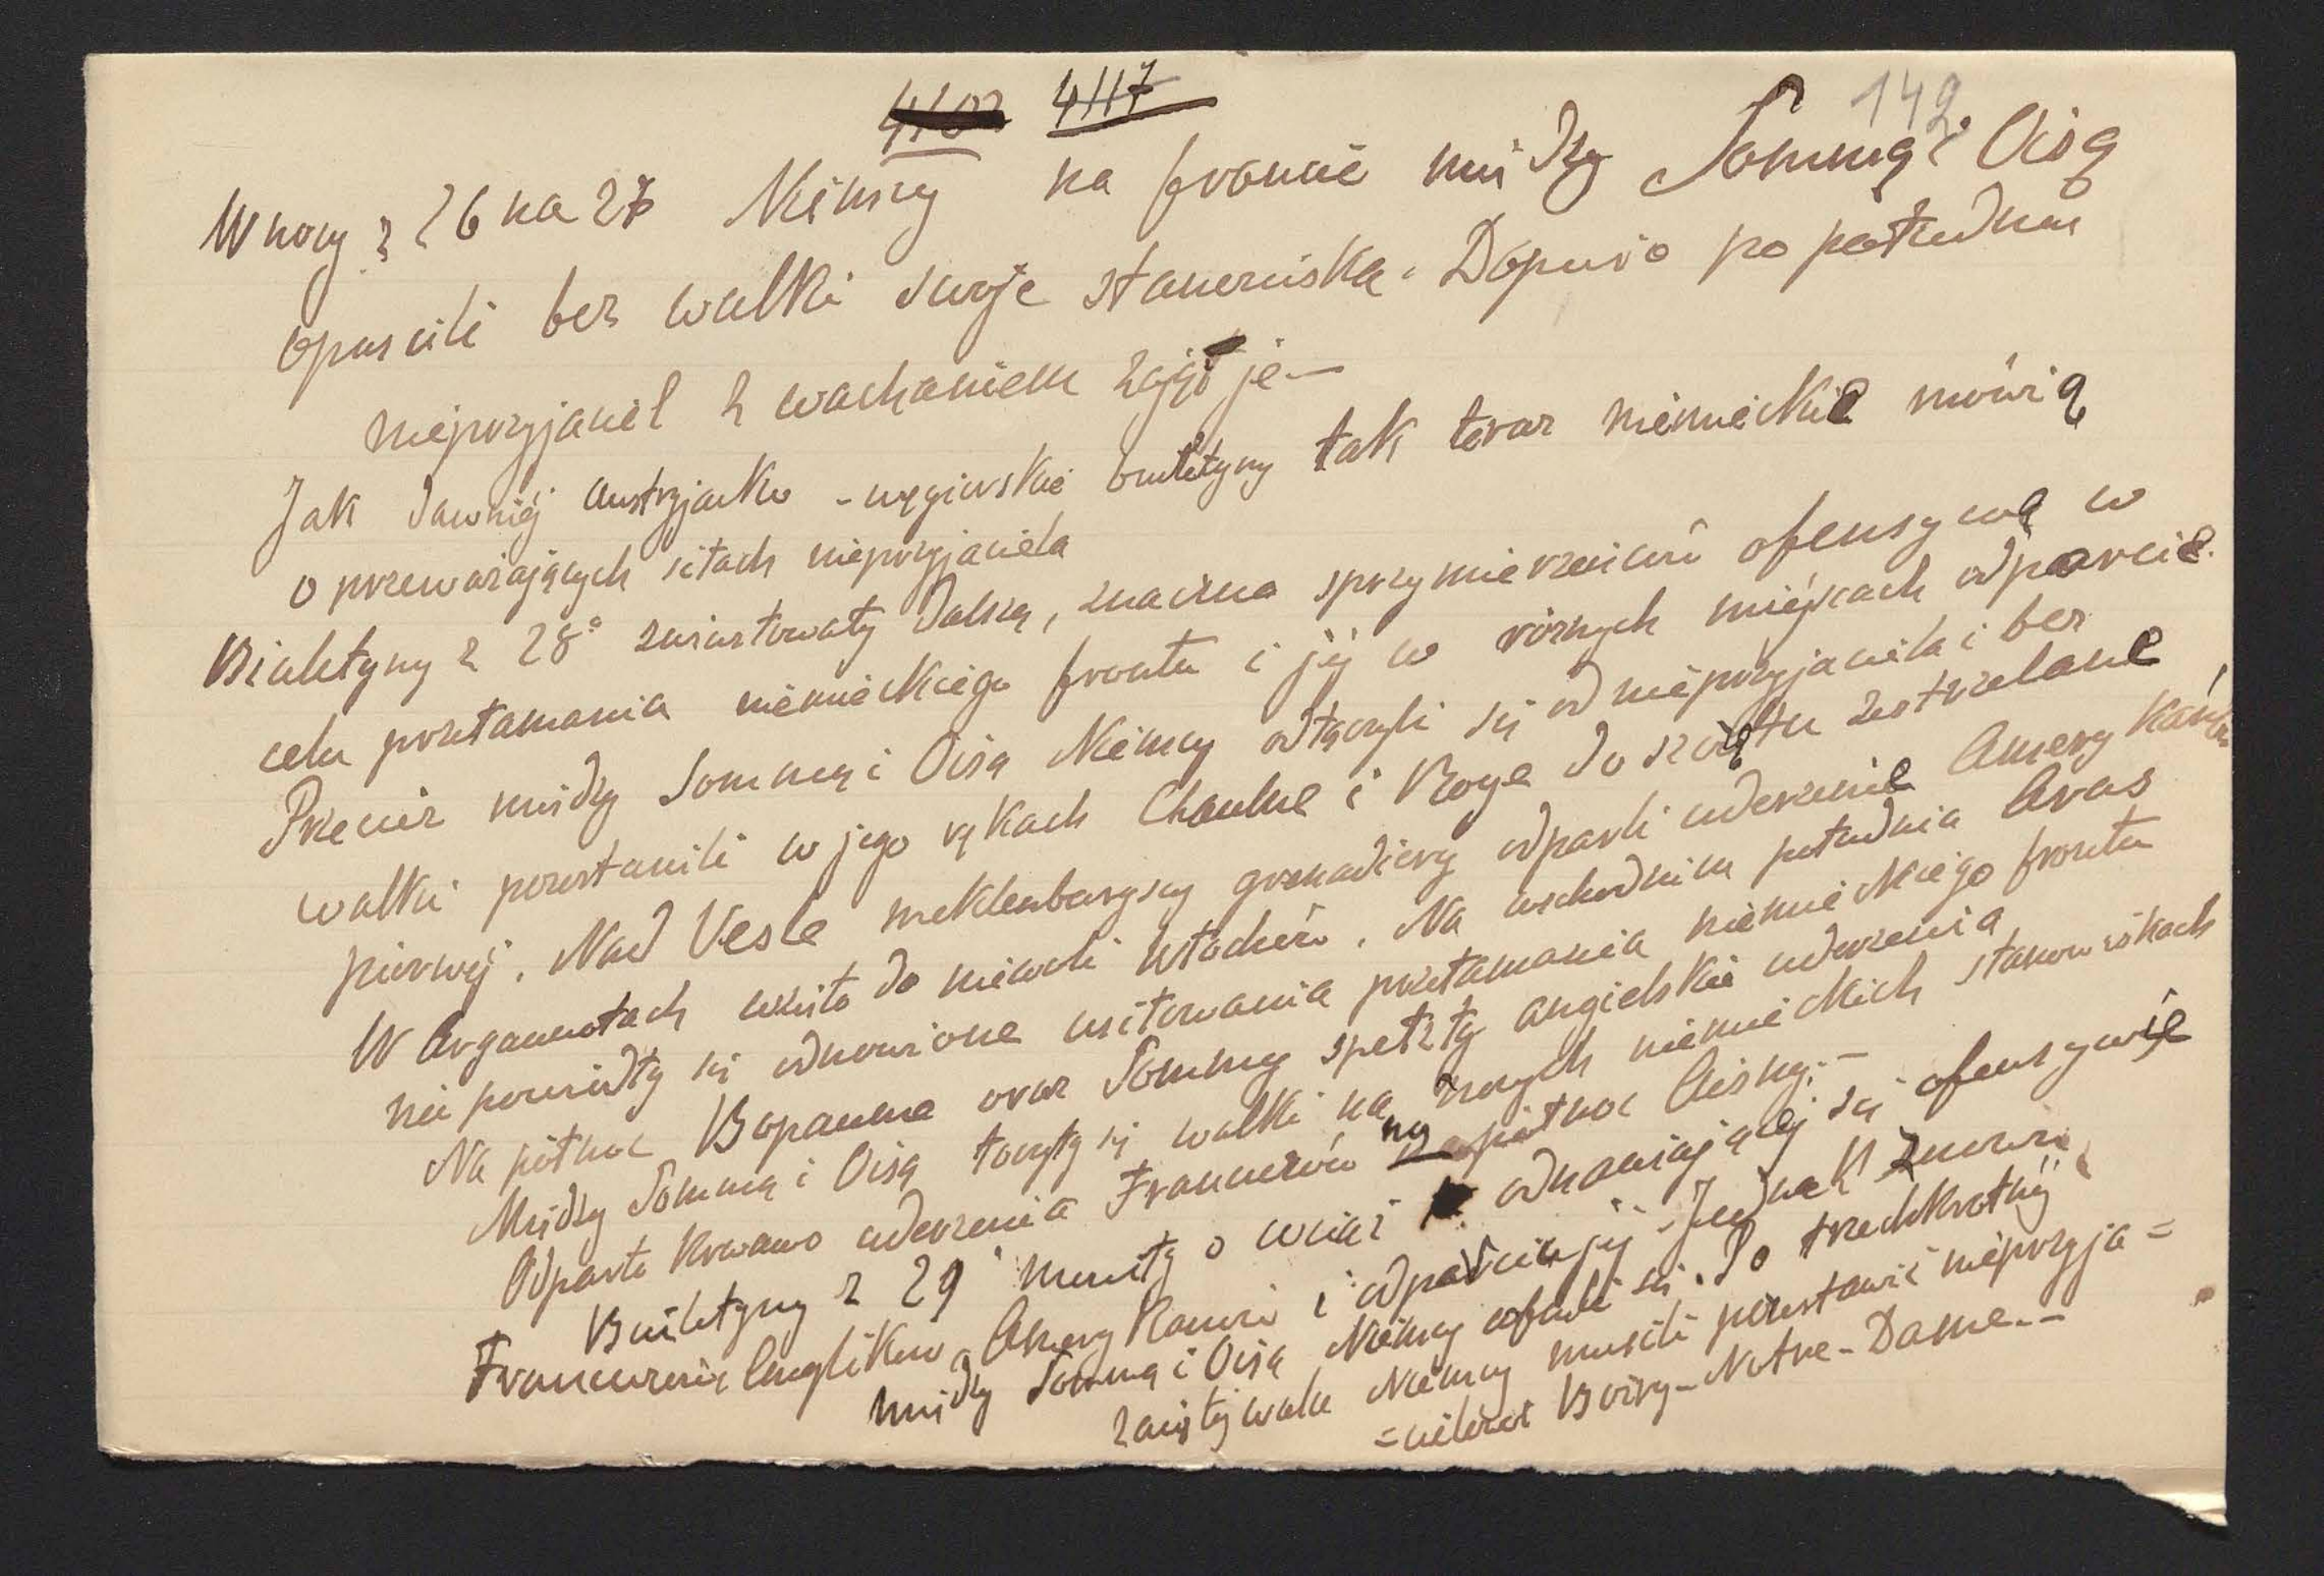 4102 4117 142
W nocy z 26 na 27 Niemcy na froncie między Sommą i Oisą
opuscili bez walki swoje stanowiska. Dopiero po południu
nieprzyjaciel z wachaniem zajął je —
Jak dawniej austryjacko-węgierskie buletyny tak teraz niemieckie mówią
o przeważających siłach nieprzyjaciela
Biuletyny z 28° zwiastowały dalszą, znaczna sprzymierzeńców ofensywą w
celu przełamania niemieckiego frontu i jej w różnych miejscach odparcie.
Przeciez między Sommą i Oisą Niemcy odłączyli się od nieprzyjaciela i bez
walki pozostawili w jego rękach Chaulne i Roye do szczętu zestrzelane
pierwej. Nad Vesle meklenburgscy grenadiery odparli uderzenie Amerykanów
W Argonnotach wzięto do niewoli Włochów. Na wschodniem południa Aras
nie powiodły się odnowione usiłowania przełamania niemieckiego frontu
Na północ Bapaume oraz Sommy spełzły angielskie uderzenia
Między Sommą i Oisą toczyły się walki na nowych niemieckich stanowiskach
Odparto krwawo uderzenia Francuzów na północ Aisny. —
Biuletyny z 29 mówiły o wciąż odnawiającej się ofensywie
Francuzów Anglików, Amerykanów i odparciu jej. Jednak znowu
między Sommą i Oisą Niemcy cofneli się. Po trzechkrotnej
zaciętej walce Niemcy musieli pozostawić nieprzyja=
=cielowi Boiry-Notre-Dame. —